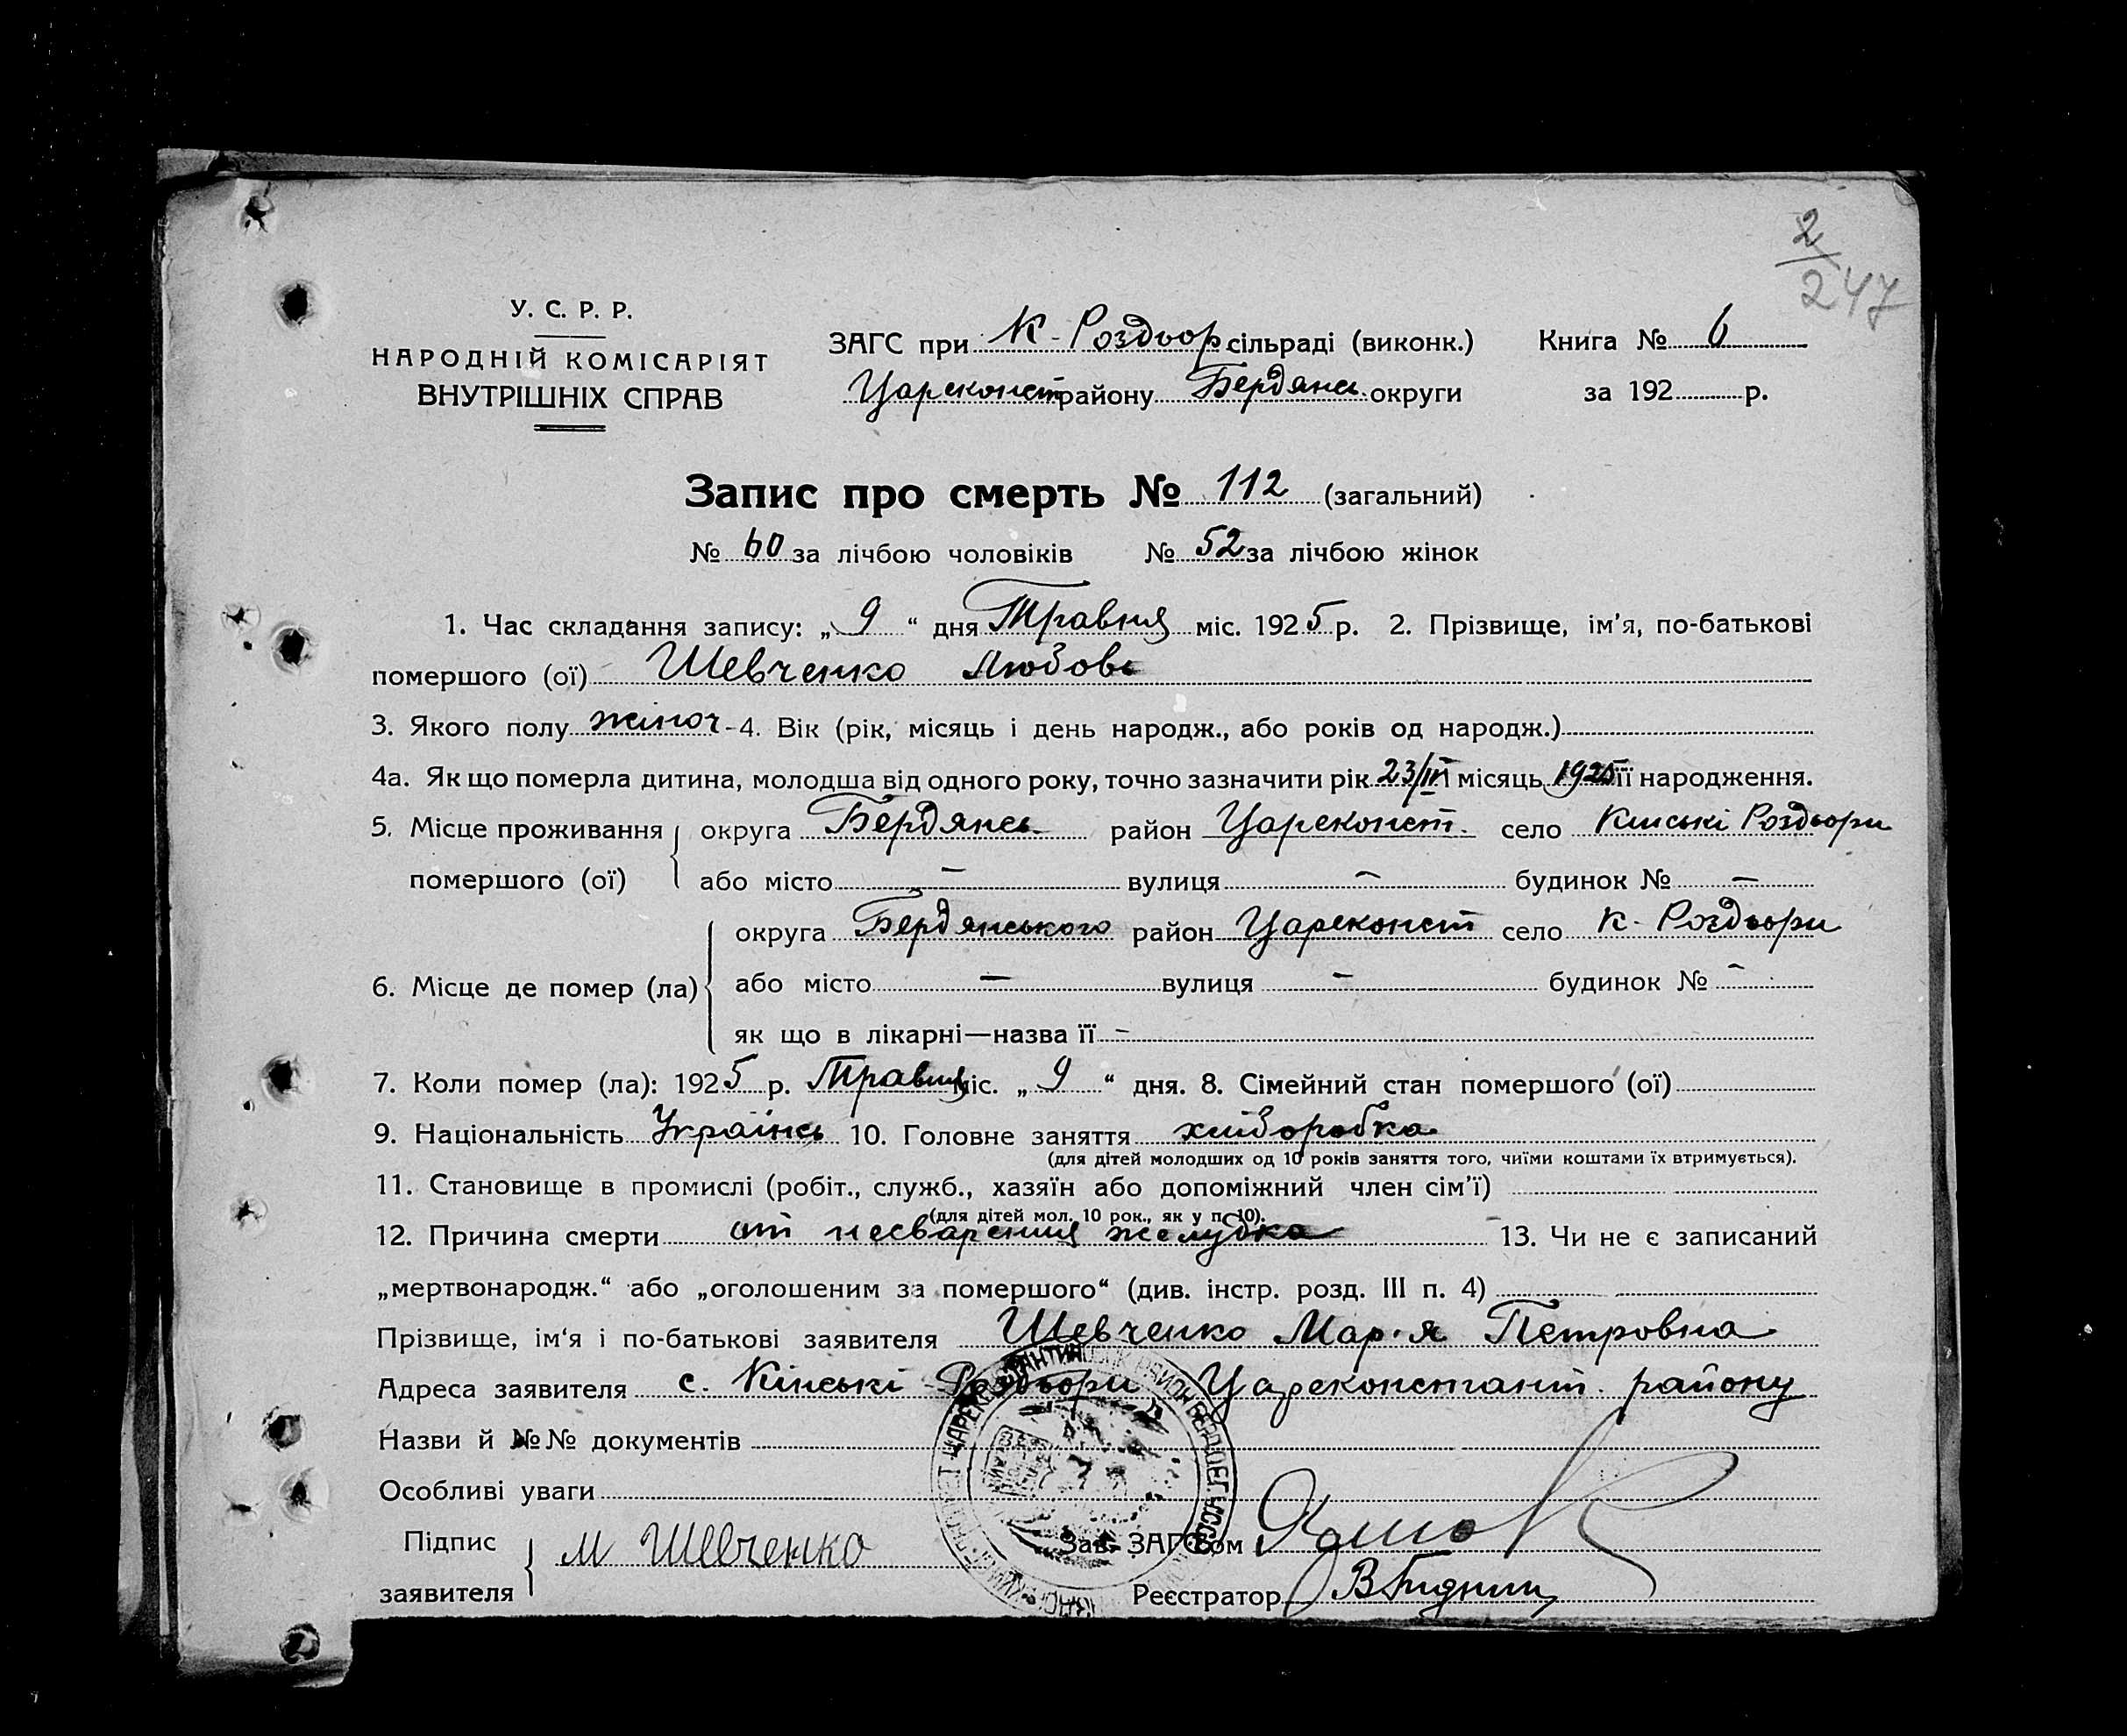 2
247
У. С. Р. Р.
НАРОДНІЙ КОМІСАРІЯТ
ВНУТРІШНІХ СПРАВ
ЗАГС при К-Роздьор сільраді (виконк.) Книга № 6
Цареконст району Бердянсь округи за 192 р.
Запис про смерть № 112 (загальний)
№ 60 за лічбою чоловіків № 52 за лічбою жінок
1. Час складання запису: „ 9 “ дня Травня міс. 1925 р. 2. Прізвище, ім'я, по-батькові
помершого (ої) Шевченко Любовь
3. Якого полу жіноч - 4. Вік (рік, місяць і день народж., або років од народж.)
4а. Як що померла дитина, молодша від одного року, точно зазначити рік 23/III і місяць 1925 її народження.
5. Місце проживання округа Бердянсь район Цареконст. село Кінські Роздьори
помершого (ої) або місто – вулиця – будинок № –
округа Бердянського район Цареконст село К-Роздьори
6. Місце де помер (ла) або місто – вулиця – будинок № –
як що в лікарні—назва її –
7. Коли помер (ла): 1925 р. Травня міс. „ 9 “ дня. 8. Сімейний стан помершого (ої)
9. Національність Українсь 10. Головне заняття хліборобка
(для дітей молодших од 10 років заняття того, чиїми коштами їх втримується).
11. Становище в промислі (робіт., служб., хазяїн або допоміжний член сім'ї)
(для дітей мол. 10 рок., як у п. 10).
12. Причина смерти от несварения желудка 13. Чи не є записаний
„мертвонародж.“ або „оголошеним за помершого“ (див. інстр. розд. III п. 4)
Прізвище, ім'я і по-батькові заявителя Шевченко Марія Петровна
Адреса заявителя с. Кінські Роздьори Цареконстант. району
Назви й №№ документів
Особливі уваги
Підпис М Шевченко Зав. ЗАГС'ом
заявителя Реєстратор